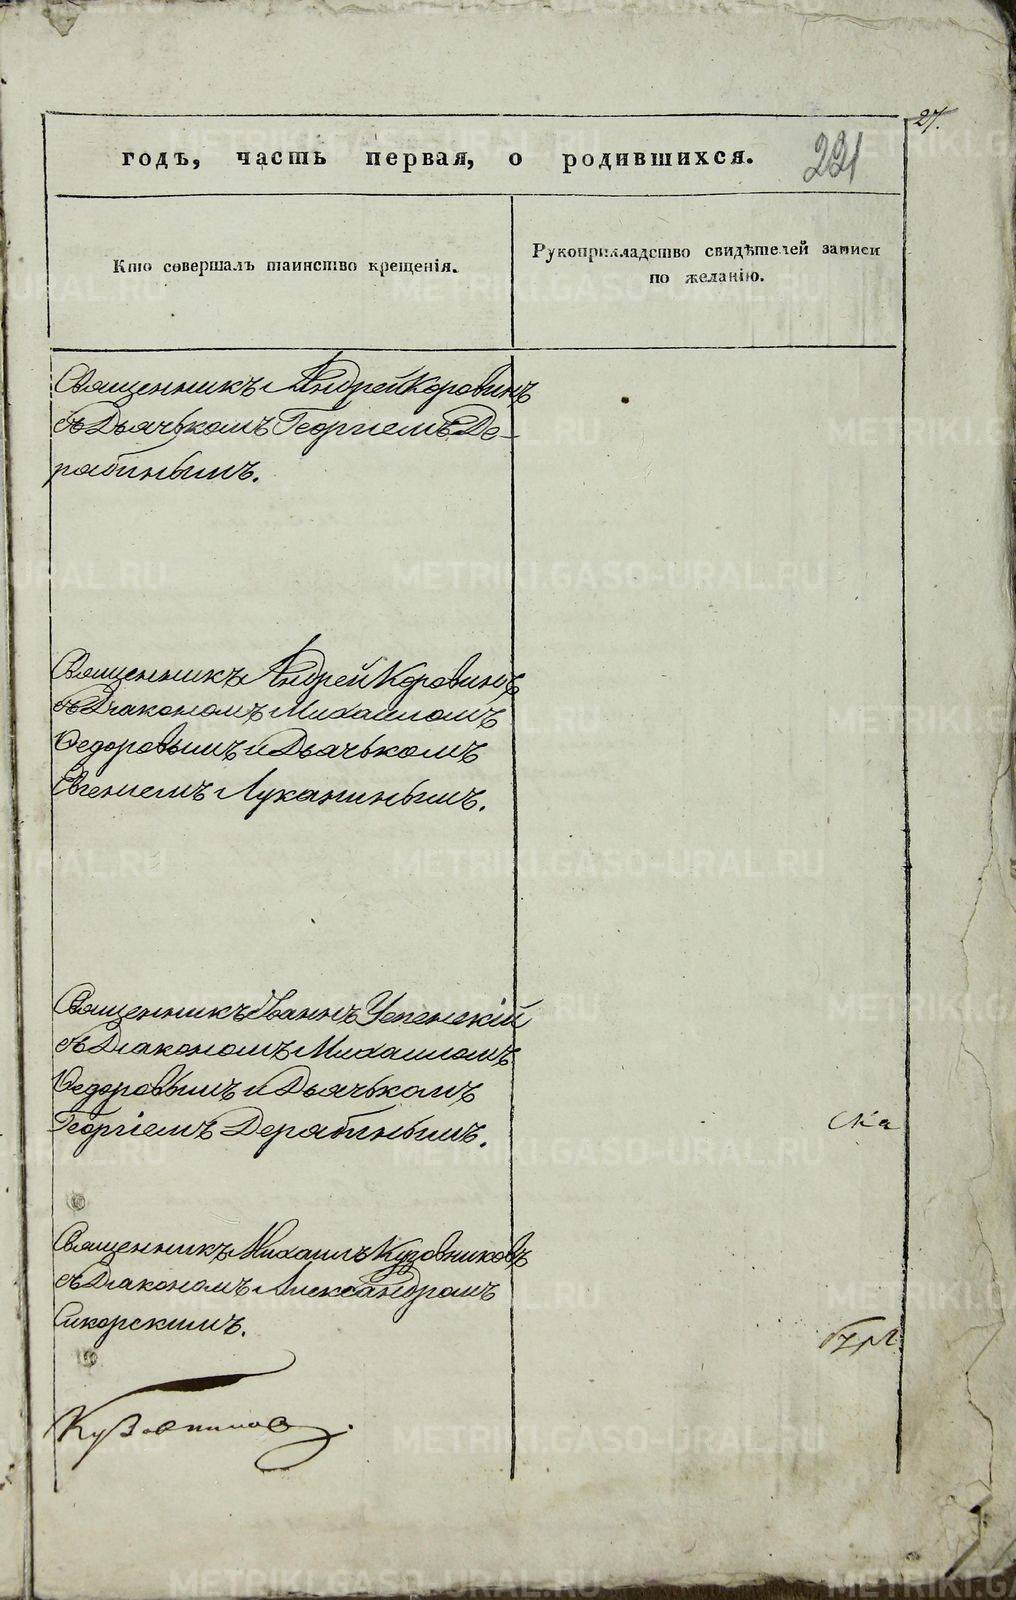 27.
годъ, часть первая, о родившихся.
221
Кто совершалъ таинство крещенія.
Рукоприкладство свидѣтелей записи
по желанію.
Священникъ Андрей Коровинъ
съ Дьячькомъ Георгіемъ Де-
рябинымъ.
Священникъ Андрей Коровинъ
съ Діакономъ Михаиломъ
Ѳедоровымъ и Дьячькомъ
Евгеніемъ Луканинымъ.
Священникъ Іоаннъ Успенскій
съ Діакономъ Михаиломъ
Ѳедоровымъ и Дьячькомъ
Георгіемъ Дерябинымъ.
Священникъ Михаилъ Кузовниковъ
съ Діакономъ Александромъ
Сикорскимъ.
METRIKI.GASO-URAL.RU